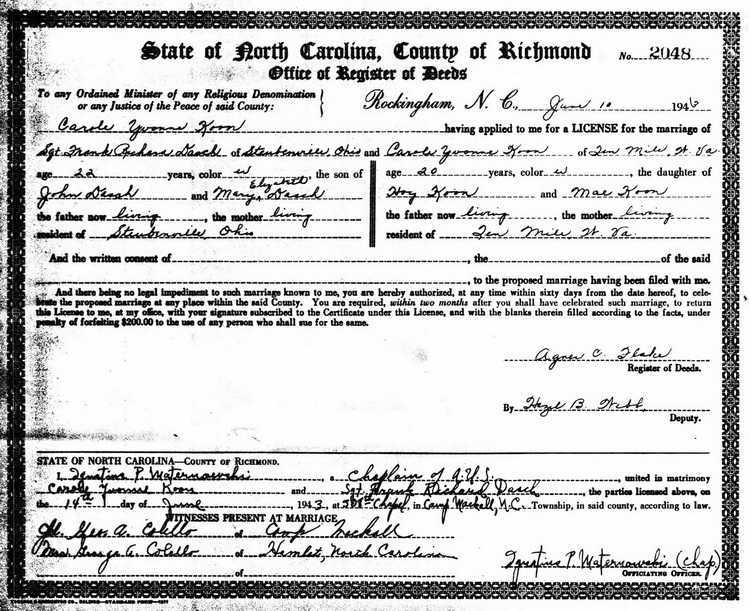 State of North Carolina, County of Richmond No. 2048
Office of Register of Deeds
To any Ordained Minister of any Religious Denomination
or any Justice of the Peace of said County:
Rockingham, N. C., June 10 1943
Carole Yvonne Koon having applied to me for a LICENSE for the marriage of
Sgt Frank Richard Dasch of Steubenville, Ohio and Carole Yvonne Koon of Ten Mile, W. Va
age 22 years, color w, the son of age 20 years, color w, the daughter of
John Dasch and Mary Elizabeth Dasch Hoy Koon and Mae Koon
the father now living, the mother living the father now living, the mother living
resident of Steubenville Ohio resident of Ten Mile W. Va.
And the written consent of , the of the said
, to the proposed marriage having been filed with me.
And there being no legal impediment to such marriage known to me, you are hereby authorized, at any time within sixty days from the date hereof, to cele-
brate the proposed marriage at any place within the said County. You are required, within two months after you shall have celebrated such marriage, to return
this License to me, at my office, with your signature subscribed to the Certificate under this License, and with the blanks therein filled according to the facts, under
penalty of forfeiting $200.00 to the use of any person who shall sue for the same.
Agnes C. Flake
Register of Deeds.
By Hazel B. Webb,
Deputy.
STATE OF NORTH CAROLINA—COUNTY OF RICHMOND.
I, Ignatius P. Maternowski, a Chaplain of A.U.S., united in matrimony
Carole Yvonne Koon and Sgt. Frank Richard Dasch, the parties licensed above, on
the 14th day of June, 1943, at Chapel, in Camp Mackall, N.C. Township, in said county, according to law.
WITNESSES PRESENT AT MARRIAGE
Geo. A. Colello of Camp Mackall
George A. Colello of Hamlet, North Carolina
of
Ignatius P. Maternowski (Chap)
OFFICIATING OFFICER.